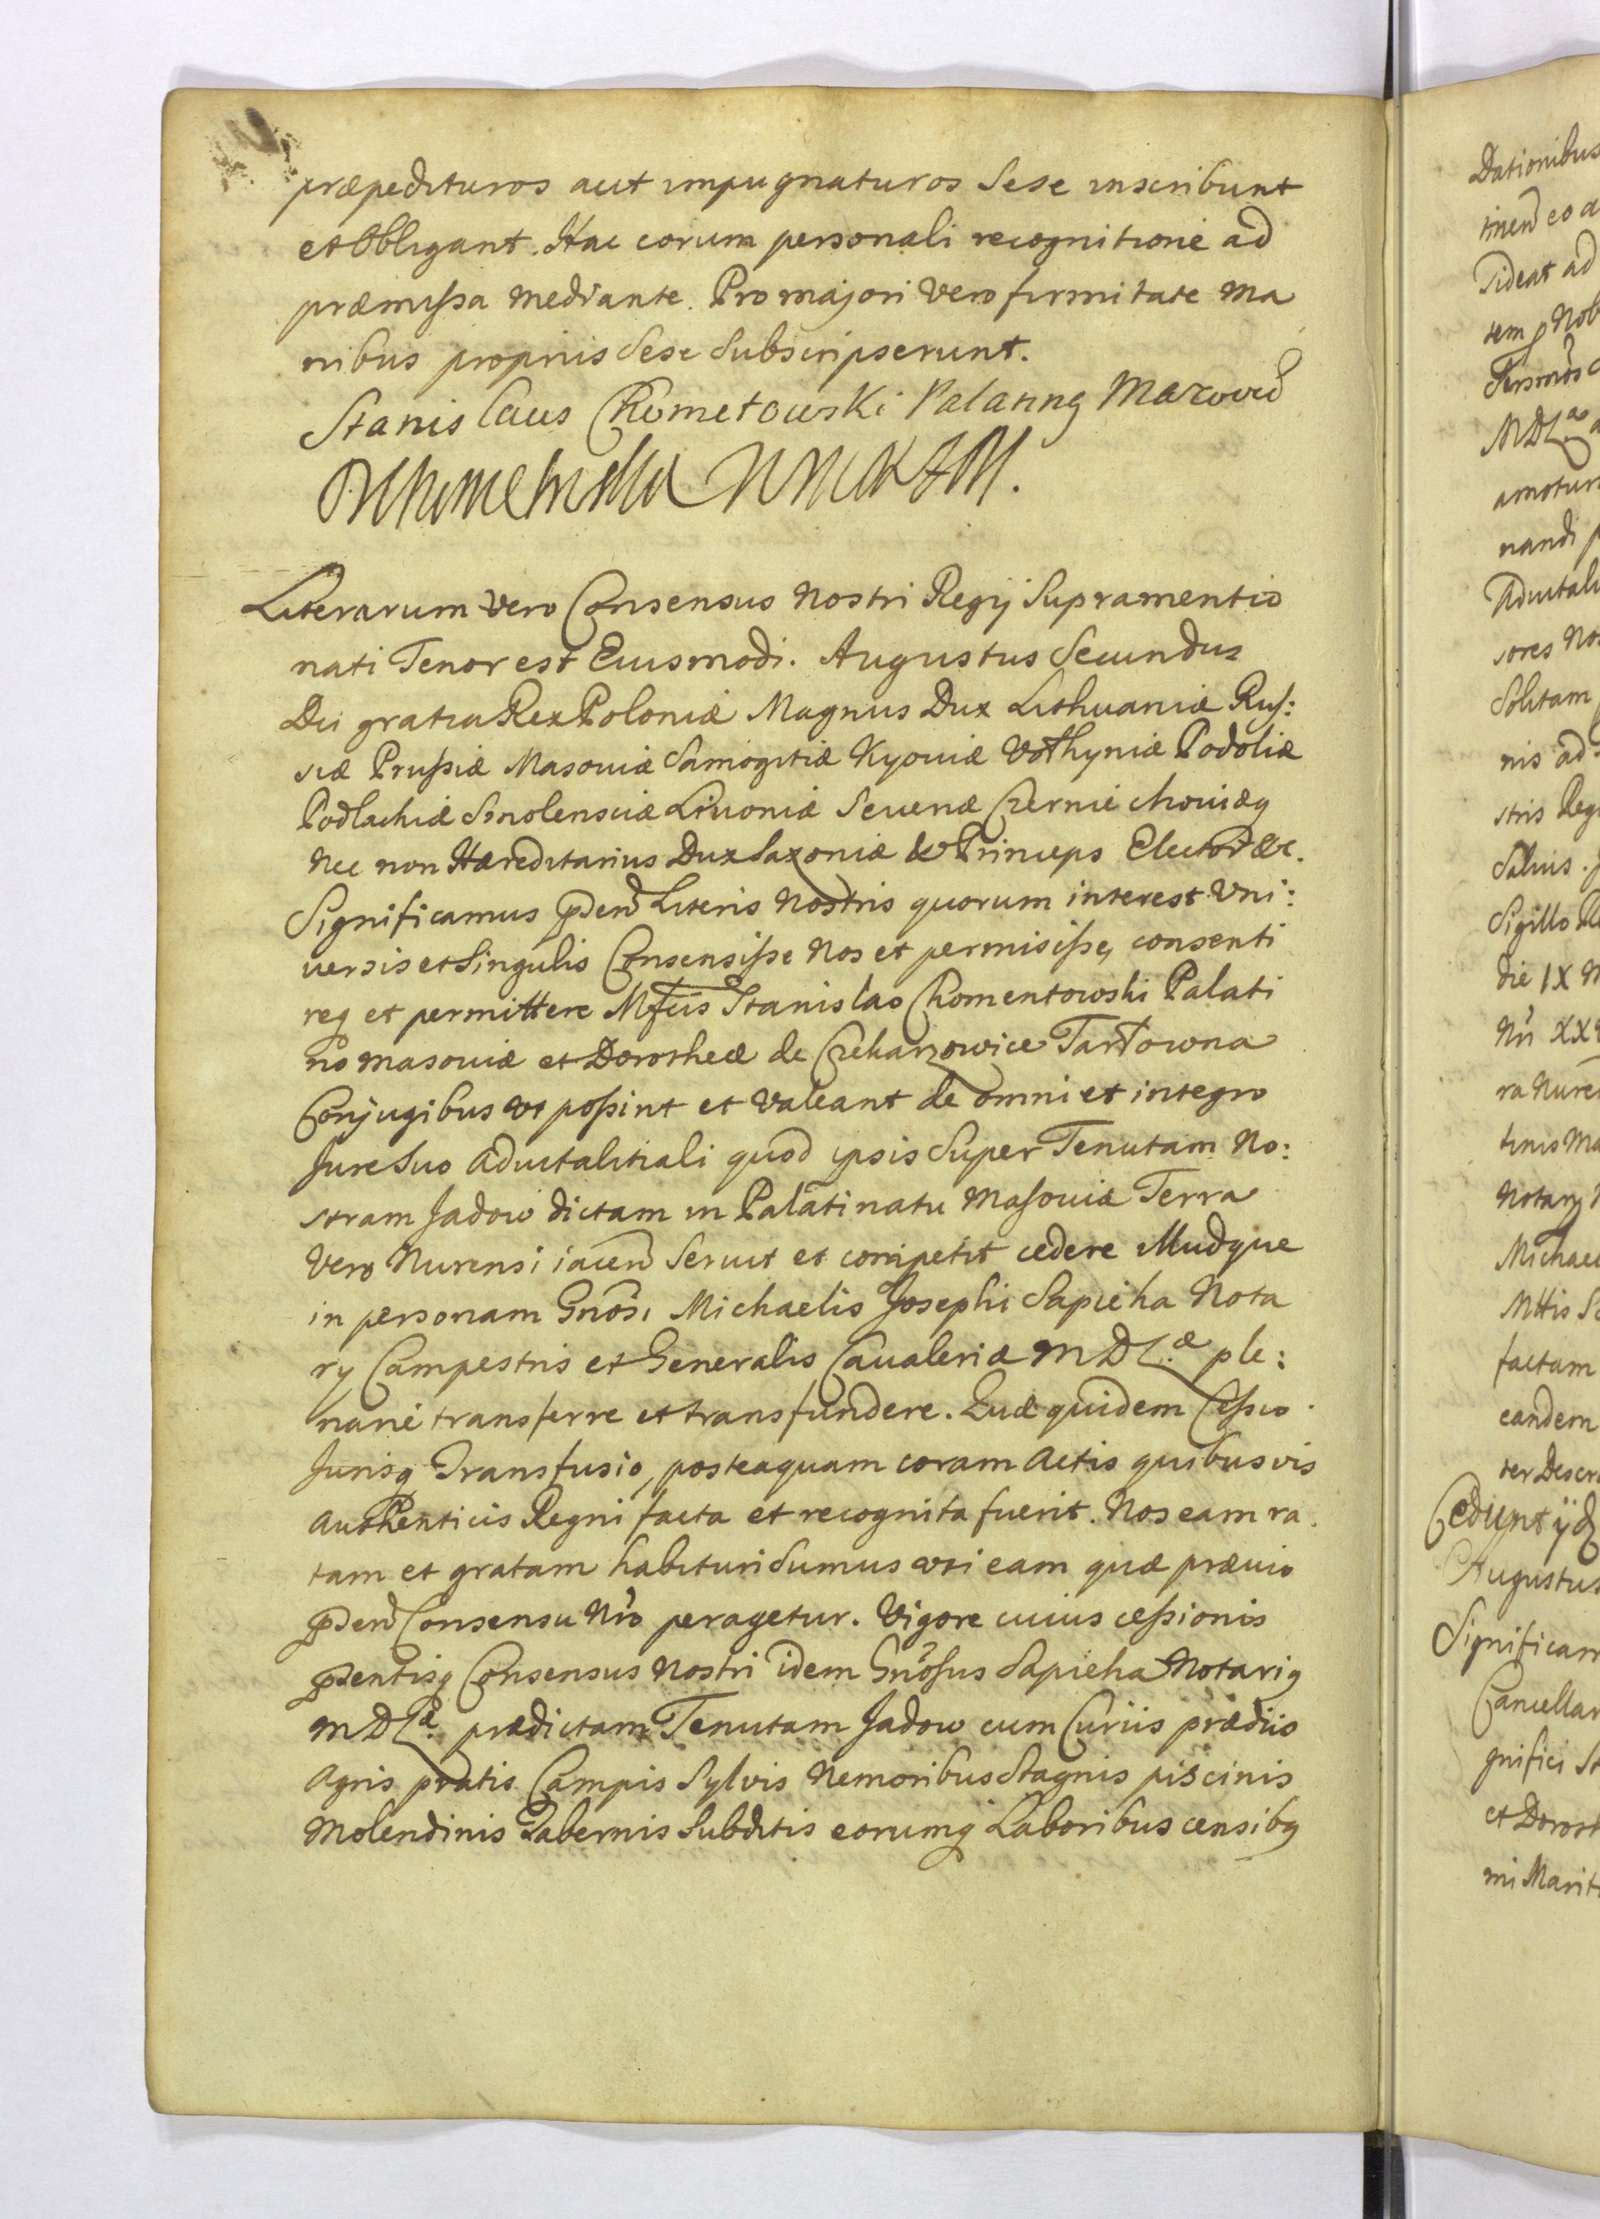 præpedituros aut impugnaturos Sese inscribunt
et Obligant. Hac eorum personali recognitione ad
præmissa mediante. Pro majori vero firmitate Ma
nibus proprijs Sese Subscripserunt.
Stanislaus Chometowski Palatinq Mazovię
Literarum vero Consensus Nostri Regij Supramentio
nati Tenor est Eiusmodi. Augustus Secundus
Dei gratia Rex Poloniæ Magnus Dux Lithuaniæ Rus:
siæ Prussiæ Masoviæ Samogitiæ Kyoviæ Volhyniæ Podoliæ
Podlachiæ Smolensciæ Livoniæ Seueriæ Czernie choviæq
Nec non Hæreditarius Dux Saxoniæ & Princeps Elector &c.
Significamus pñden Literis Nostris quorum interest Vni:
uersis et Singulis Consensisse Nos et permisisse, consenti
req et permittere Mfcis Stanislao Chomentowski Palati
no Masoviæ et Dorotheæ de Czekarzowice Tarłowna
Conjugibus vt possint et valeant de omni et integro
Jure Suo aduitalitiali quod ipsis Super Tenutam No:
stram Jadow dictam in Palatinatu Masoviæ Terra
Vero Nurensi iacen Seruit et competit cedere illudque
in personam Gnosi Michaelis Josephi Sapieha Nota
ry Campestris et Generalis Caualeriæ M D L.æ ple:
narie transferre et transfundere. Quæ quidem Cessio
Jurisq Transfusio, posteaquam coram Actis quibusvis
Authenticis Regni facta et recognita fuerit. Nos eam ra
tam et gratam habituri Sumus vti eam quæ prævio
pñden Consensu Nro peragetur. Vigore cuius cessionis
pñsentisq Consensus Nostri idem Gnosus Sapieha Notariq
M D L.æ prædictam Tenutam Jadow cum Curiis prædiis
Agris pratis Campis Sylvis Nemoribus Stagnis piscinis
Molendinis Tabernis Subditis eorumq Laboribus censibq
Dationibus
tinen eo a
sideat ad
M D L.as a
amotur
nandi p
Aduitali
sores Nos
Solitam
nis ad
stris Reg
Saluis.
Sigillo Re
die IX M
Nri XX
ra Nuren
tinis Ma
Notary
Michael
Mttis S
factam
eandem
ter Descr
Cedunt ijd
Augustus
Significam
Cancellar
gnifici St
et Dorot
mi Marit